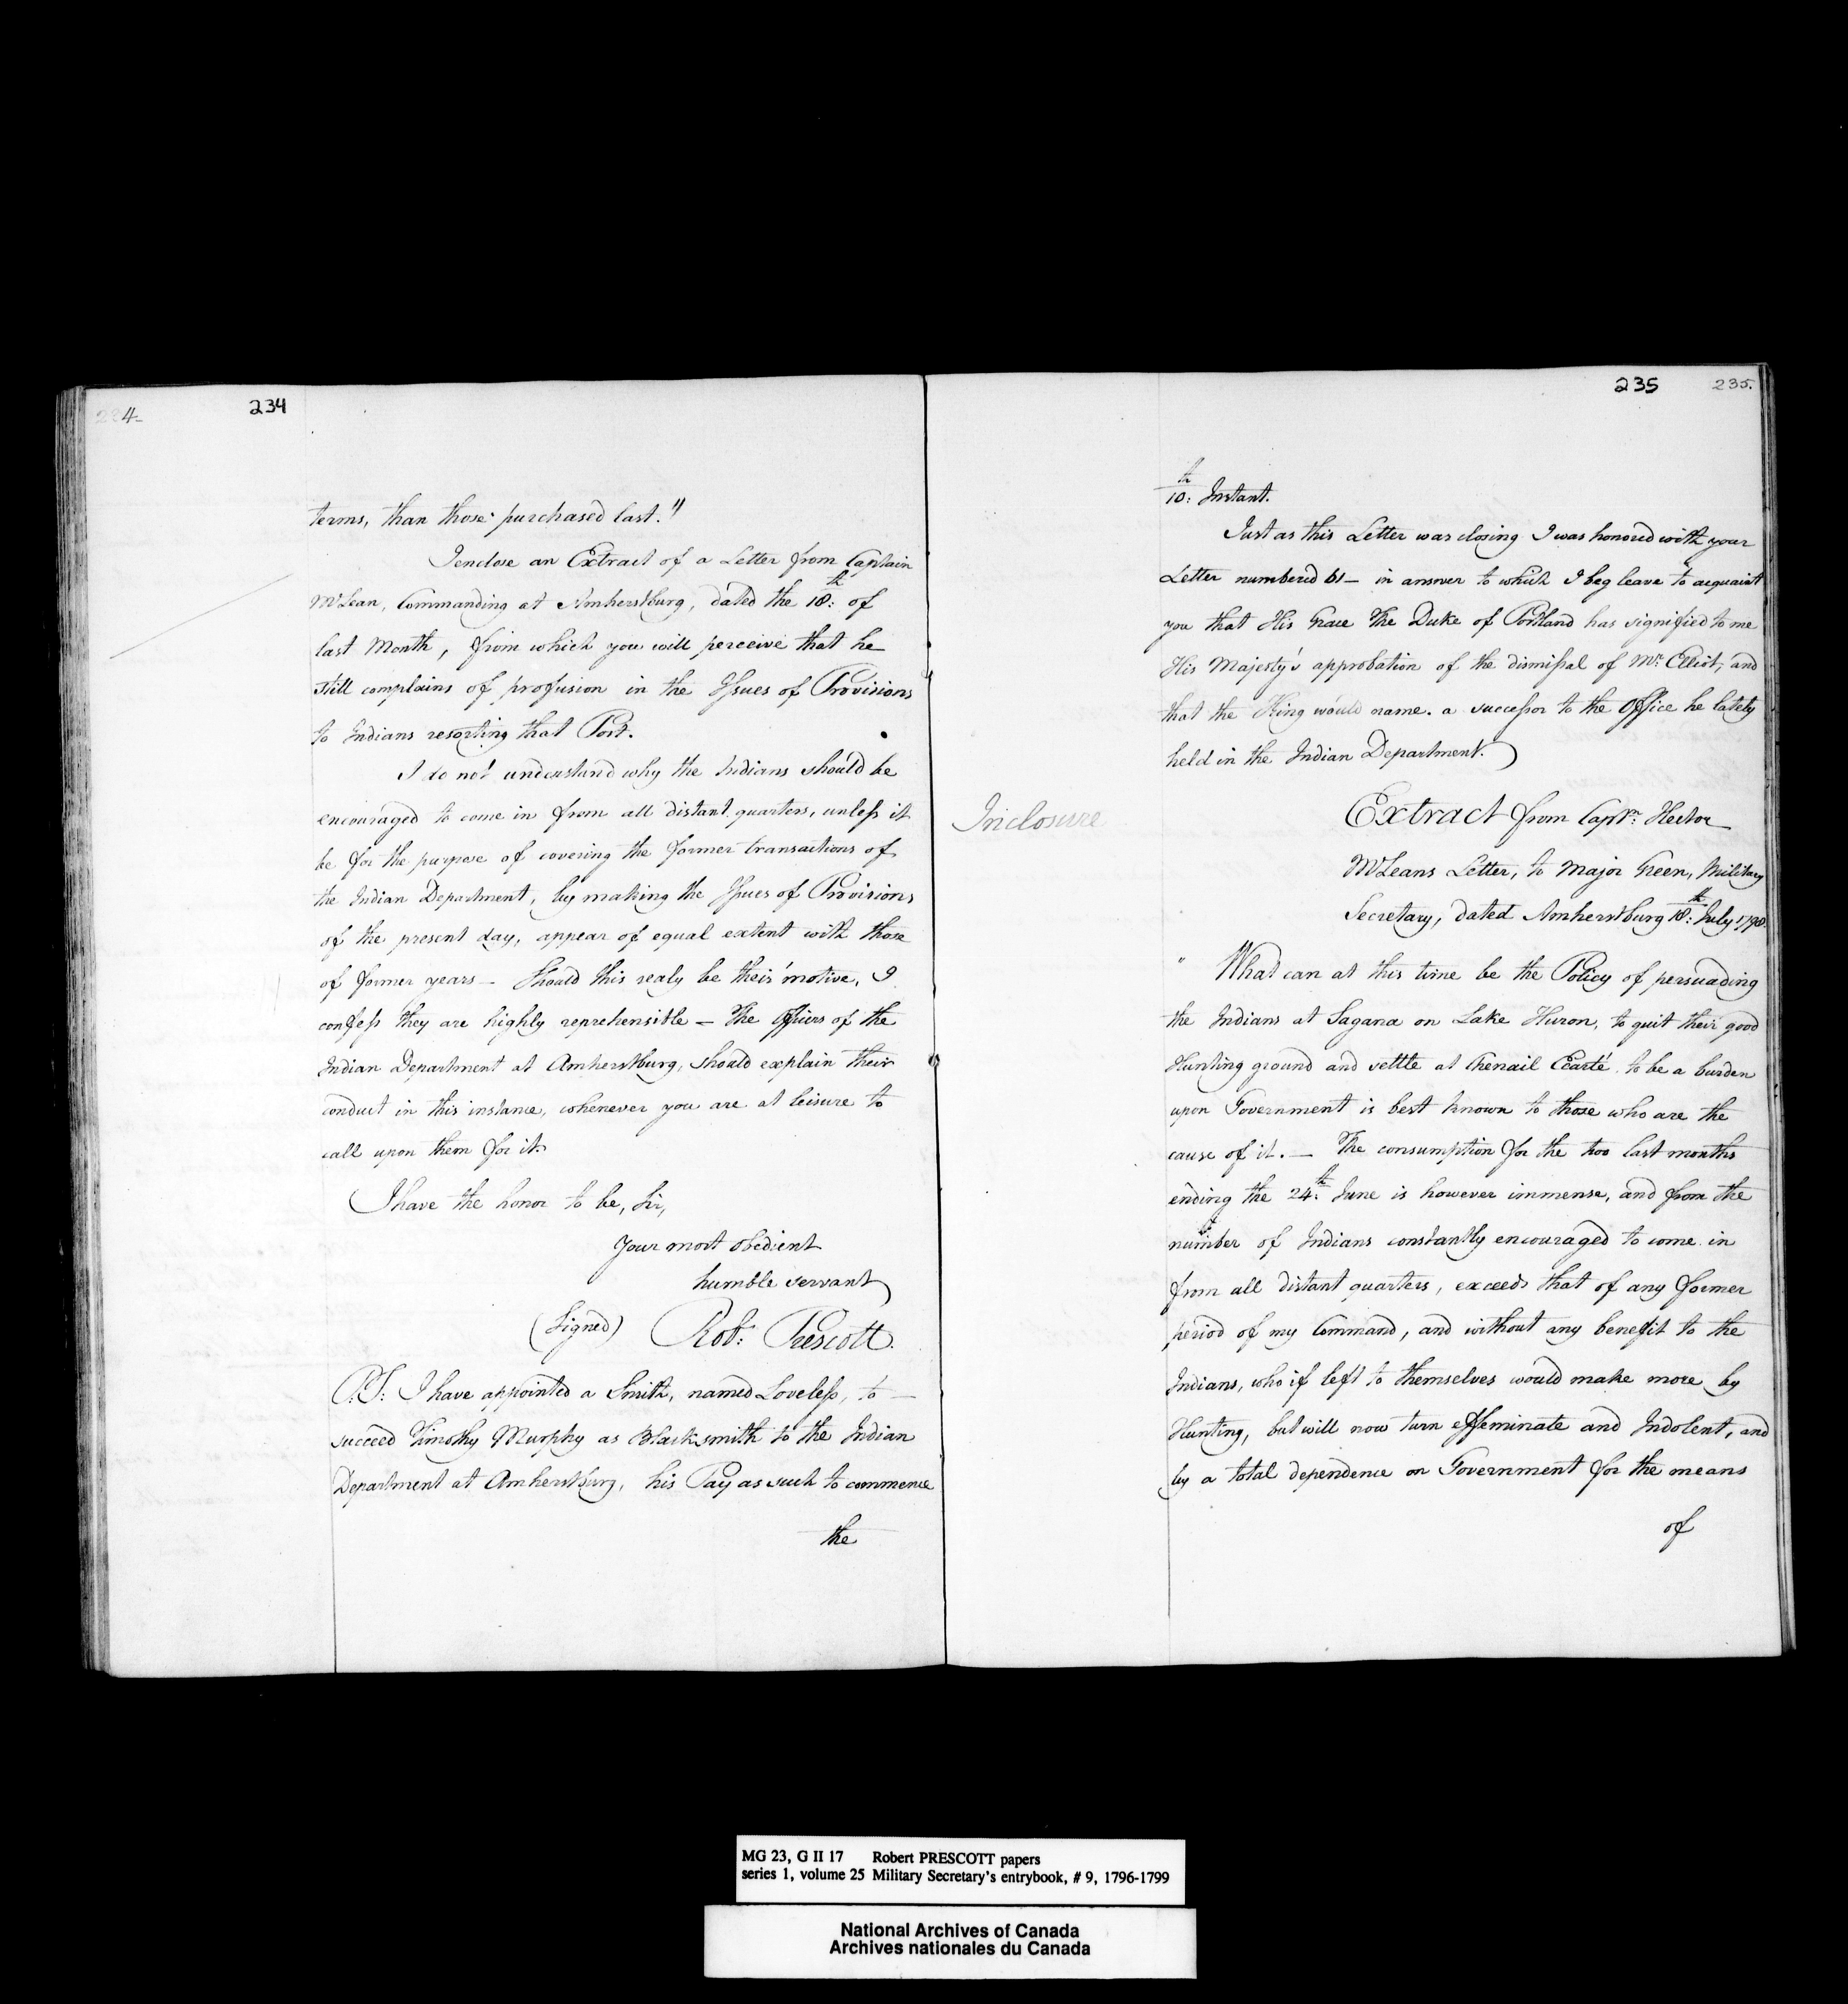 234
234
terms, than those purchased last."
I enclose an Extract of a Letter from Captain
McLean, Commanding at Amherstburg, dated the 18th: of
last Month, from which you will perceive that he
still complains of profusion in the Issues of Provisions
to Indians resorting that Post.
I do not understand why the Indians should be
encouraged to come in from all distant quarters, unless it
be for the purpose of covering the former transactions of
the Indian Department, by making the Issues of Provisions
of the present day, appear of equal extent with those
of former years — Should this realy be their motive, I
confess they are highly reprehensible — The Officers of the
Indian Department at Amherstburg, should explain their
conduct in this instance, whenever you are at leisure to
call upon them for it.
I have the honor to be, Sir,
Your most obedient
humble servant
(Signed) Robt: Prescott.
P.S: I have appointed a Smith, named Loveless, to —
succeed Timothy Murphy as Blacksmith to the Indian
Department at Amherstburg, his Pay as such to commence
the
235 235.
10th: Instant.
Just as this Letter was closing I was honored with your
Letter numbered 61 — in answer to which I beg leave to acquaint
you that His Grace The Duke of Portland has signified to me
His Majesty's approbation of the dismissal of Mr. Elliot, and
that the King would name a successor to the Office he lately
held in the Indian Department.
Inclosure
Extract from Captn: Hector
McLeans Letter, to Major Green, Military
Secretary, dated Amherstburg 18th: July 1798.
" What can at this time be the Policy of persuading
the Indians at Sagana on Lake Huron, to quit their good
Hunting ground and settle at Chenail Ecarté to be a burden
upon Government is best known to those who are the
cause of it. — The consumption for the two last months
ending the 24th: June is however immense, and from the
number of Indians constantly encouraged to come in
from all distant quarters, exceeds that of any former
period of my Command, and without any benefit to the
Indians, who if left to themselves would make more by
Hunting, but will now turn effeminate and Indolent, and
by a total dependence on Government for the means
of
MG 23, G II 17 Robert PRESCOTT papers
series 1, volume 25 Military Secretary's entrybook, # 9, 1796-1799
National Archives of Canada
Archives nationales du Canada